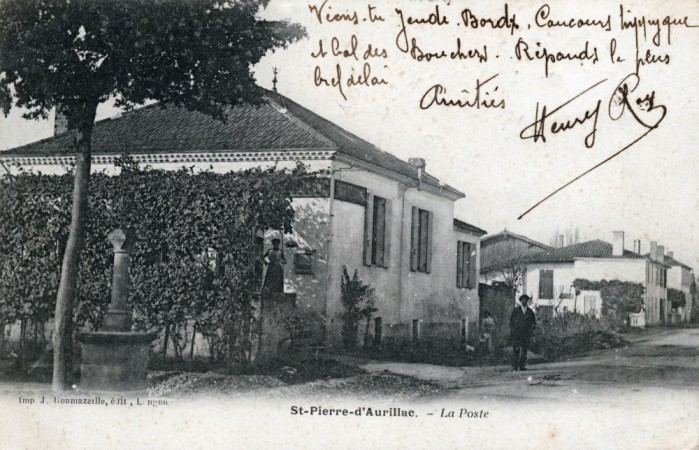 Viens-tu Jeudi. Bordx, Concours hippyque
et bal des Bouchers. Réponds le plus
bref délai
Amitiés
Henry Roy
Imp. J. Goumazeille, édit, Langon
St-Pierre-d'Aurillac. - La Poste